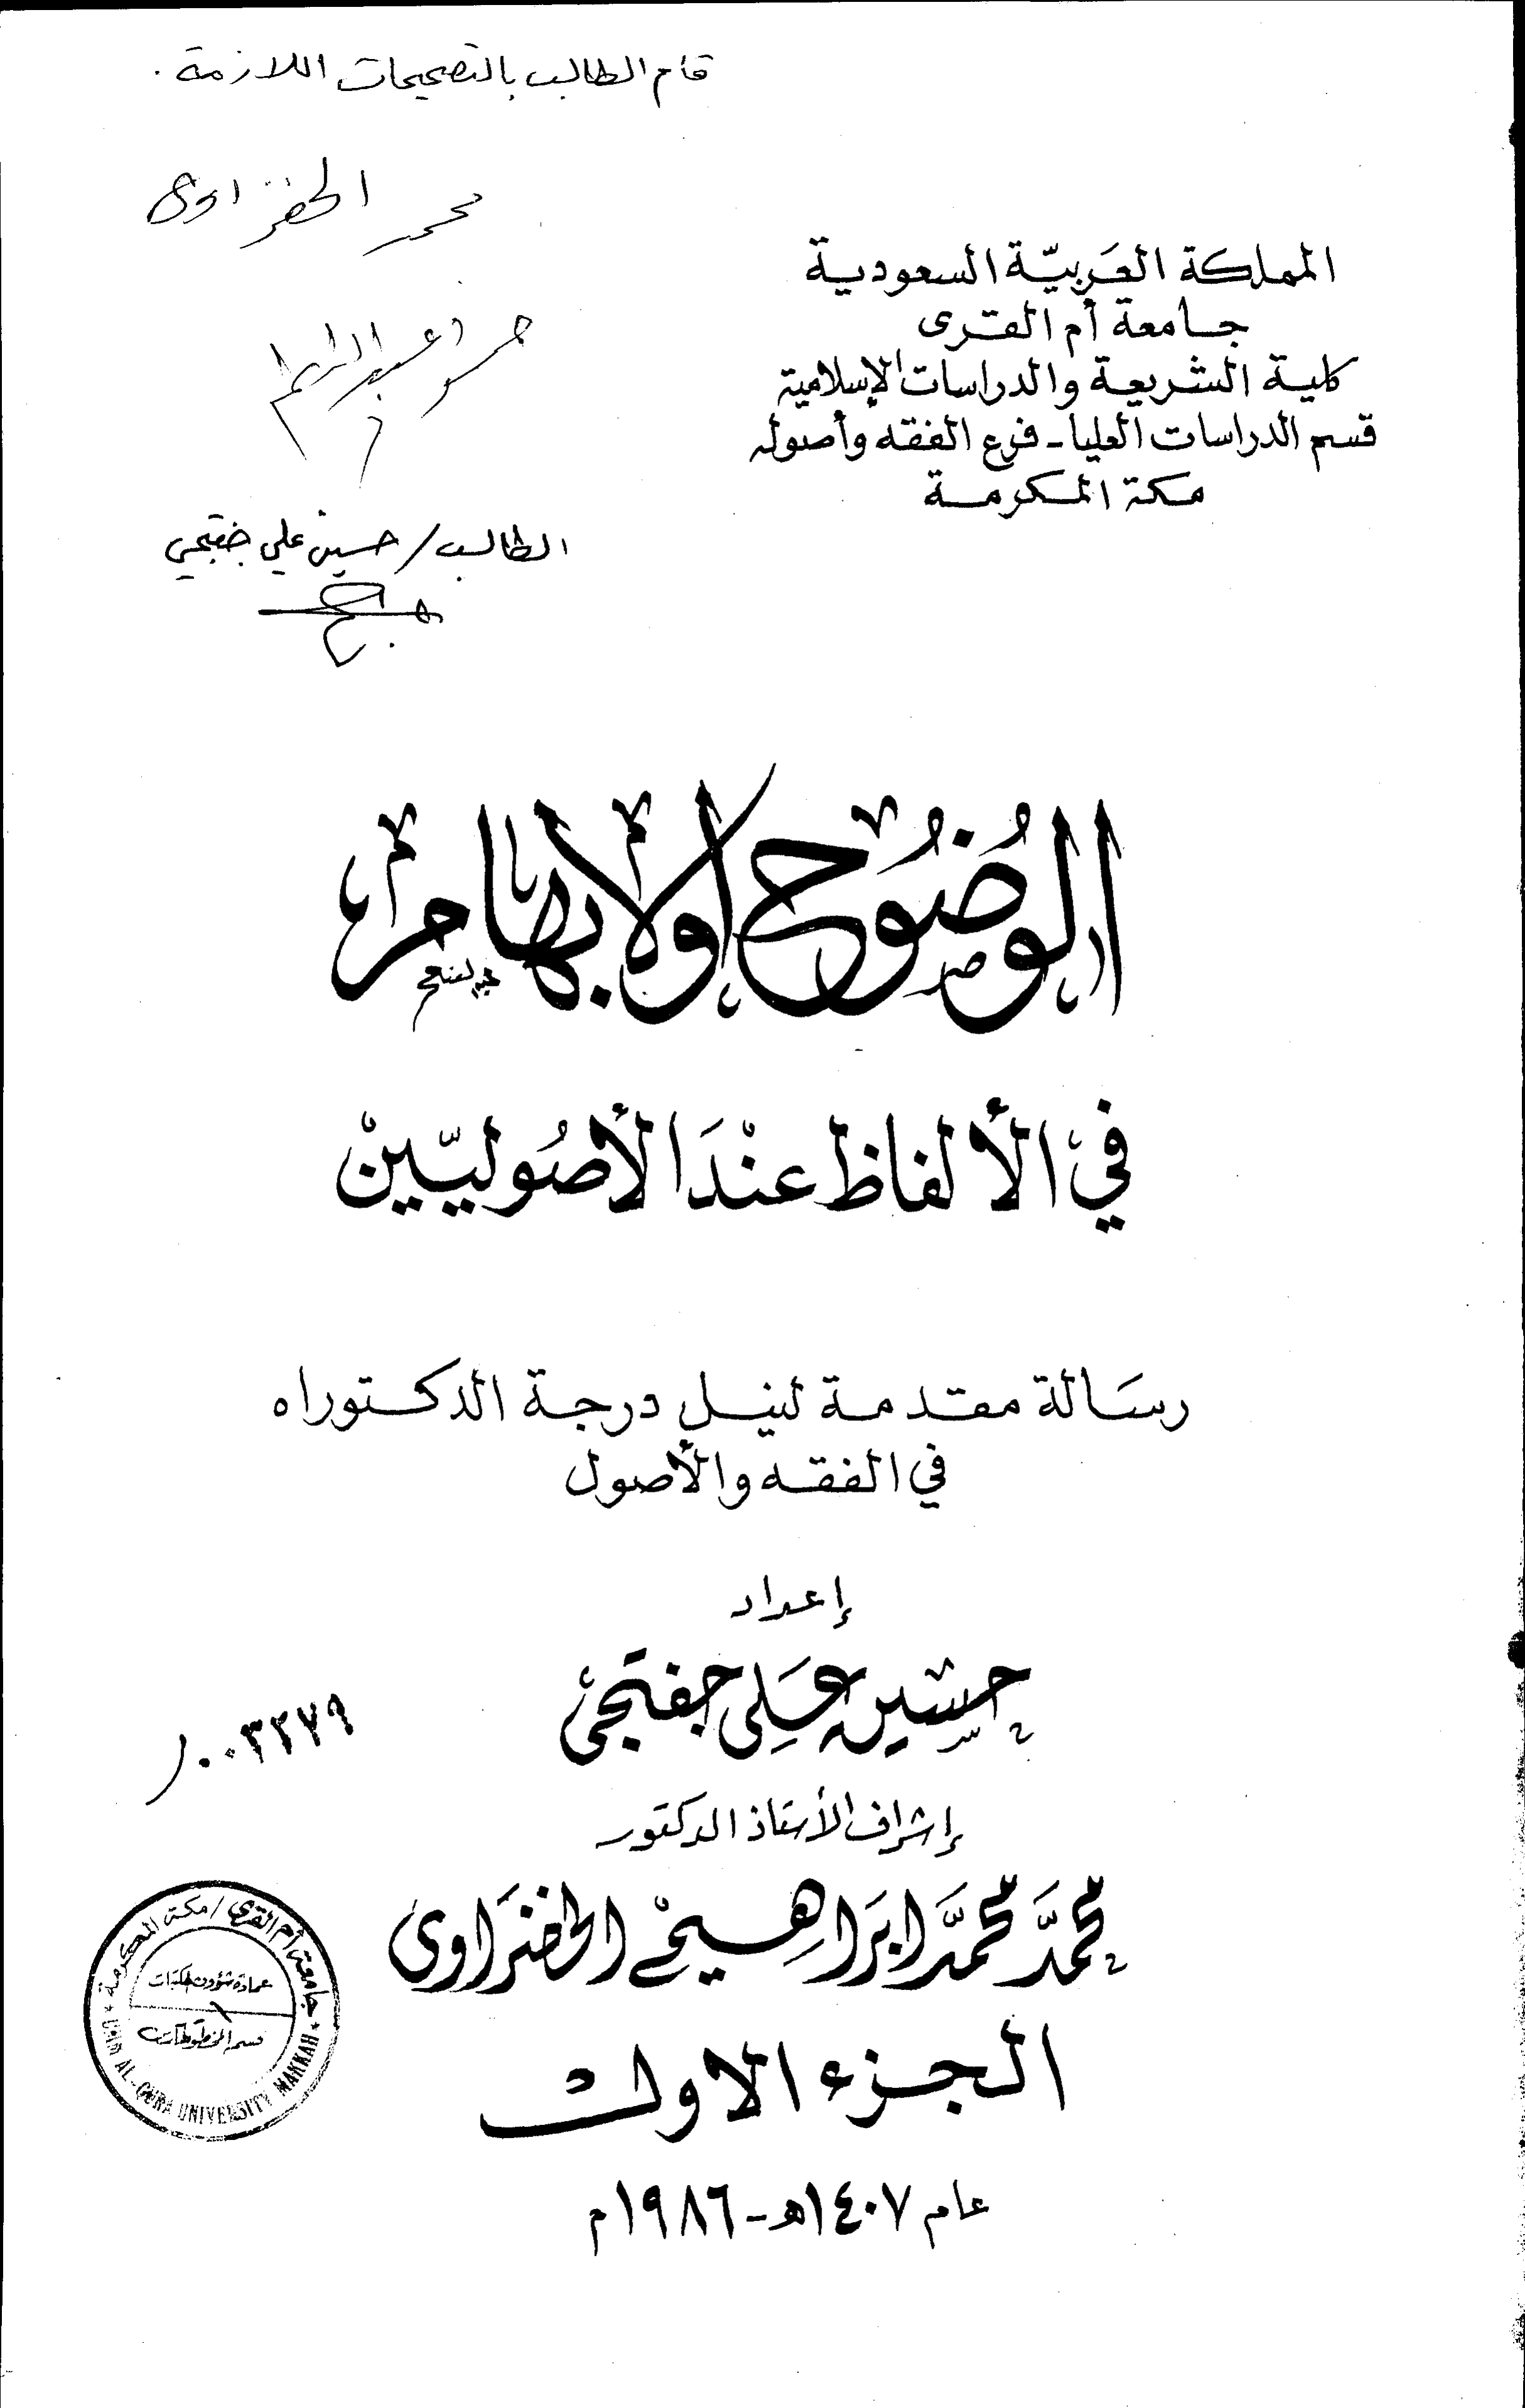 قام الطالب بالتصحيحات اللازمة.
محمد الخضراوي
المملكة العَربيّة السعودية
جامعة أم القرى
كلية الشريعة والدراسات الإسلامية
قسم الدراسات العليا - فرع الفقه وأصوله
مكة المكرمة
الطالب/ حسين علي جفتجي
الوُضُوح والإبهام
في الألفاظ عنْدَ الأصُوليّينْ
رسَالة مقدمة لنيل درجة الدكتوراه
في الفقه والأصول
إعداد
حسين عَلِي جفتجي
٠٠٣٢٧٩
إشراف الأستاذ الدكتور
محمَّد محمَّد ابرَاهِيم الخضرَاوى
الجزء الاول
عام ١٤٠٧هـ - ١٩٨٦م
جامعة أم القرى / مكة المكرمة
عمادة شؤون المكتبات
قسم المخطوطات
UMM AL-QURA UNIVERSITY MAKKAH